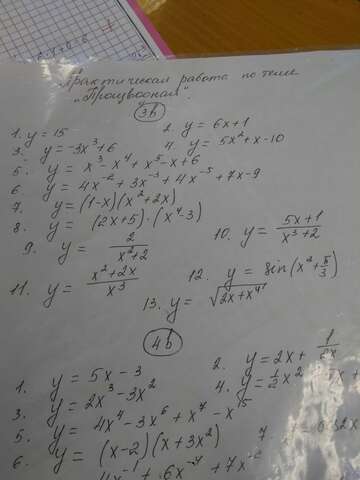 Практическая работа по теме
"Производная".
3в
1. y = 15 2. y = 6x+1
3. y = -3x³+6 4. y = 5x²+x-10
5. y = x³-x⁴+x⁵-x+6
6. y = 4x⁻²+3x⁻³+4x⁻⁵+7x-9
7. y = (1-x)(x²+2x)
8. y = (2x+5)·(x⁴-3)
9. y = 2/(x²+2) 10. y = (5x+1)/(x³+2)
11. y = (x²+2x)/x³ 12. y = sin(x²+π/3)
13. y = √(2x+x⁴)
4в
1. y = 5x-3 2. y = 2x+
3. y = 2x³-3x² 4. y = ½x²
5. y = 4x⁴-3x⁶+x⁷-x¹⁵
6. y = (x-2)(x+3x²) 7.